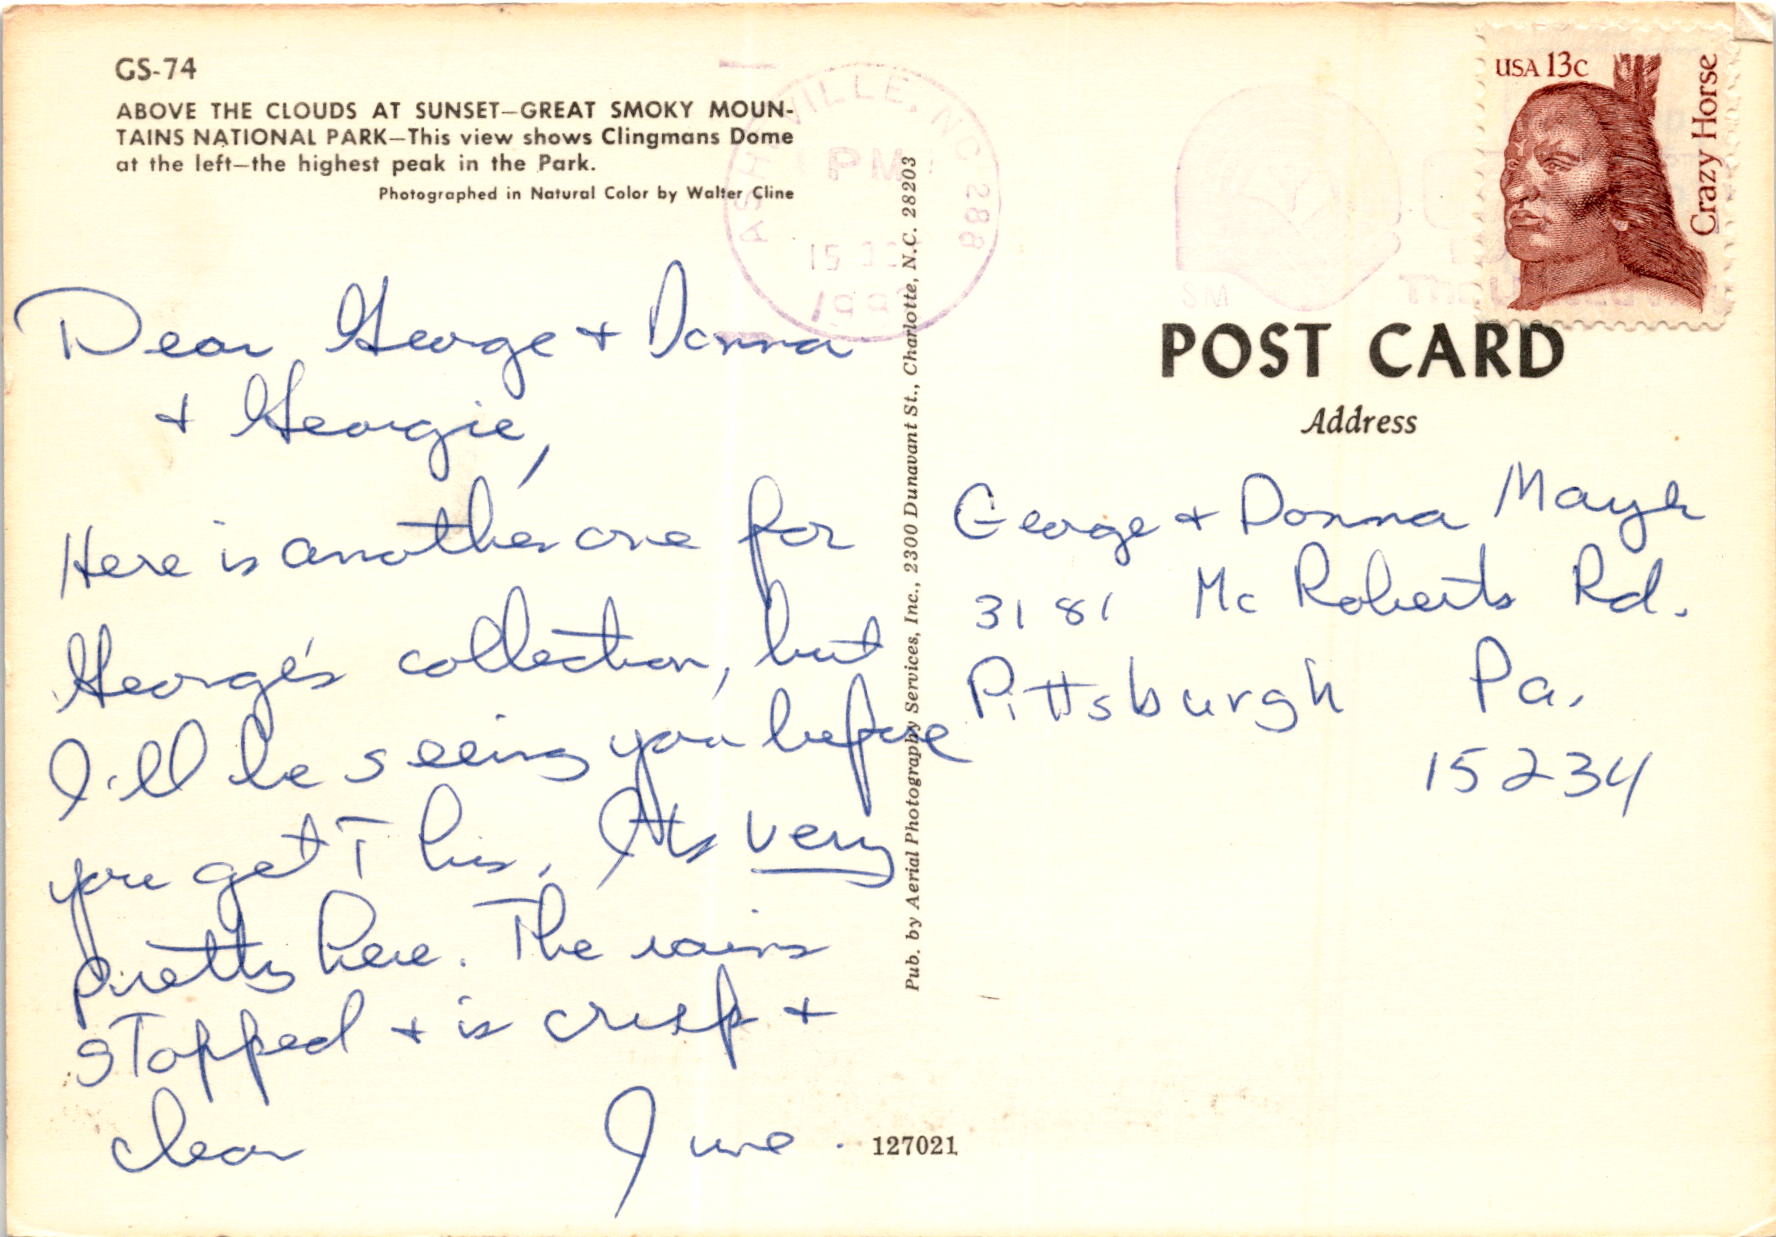 GS-74
ABOVE THE CLOUDS AT SUNSET—GREAT SMOKY MOUN-
TAINS NATIONAL PARK—This view shows Clingmans Dome
at the left—the highest peak in the Park.
Photographed in Natural Color by Walter Cline
Dear George + Donna
+ Georgie,
Here is another one for
George's collection, but
I'll be seeing you before
you get This. Its very
pretty here. The rains
stopped + is crisp +
clear June.
ASHEVILLE, NC 288
PM
15
Pub. by Aerial Photography Services, Inc., 2300 Dunavant St., Charlotte, N.C. 28203
127021
SM
USA 13c
Crazy Horse
POST CARD
Address
George + Donna
3181 Mc Roberts Rd.
Pittsburgh Pa.
15234